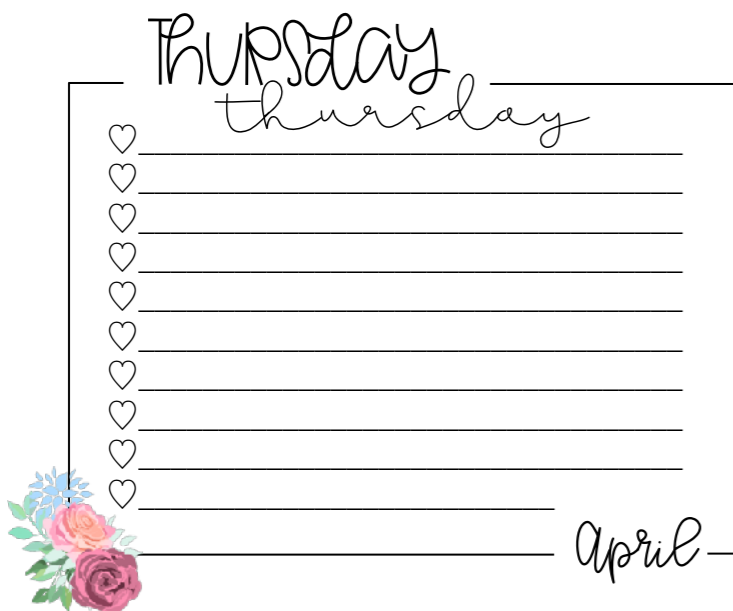 Thursday
thursday
april